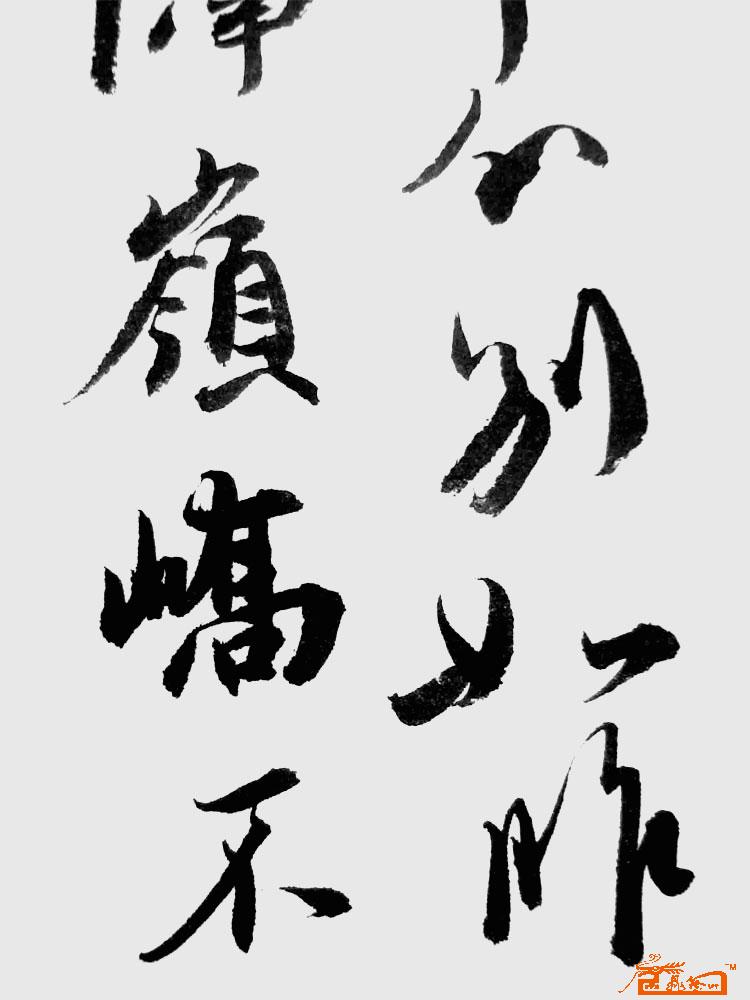 分别如昨
嶺嶠不